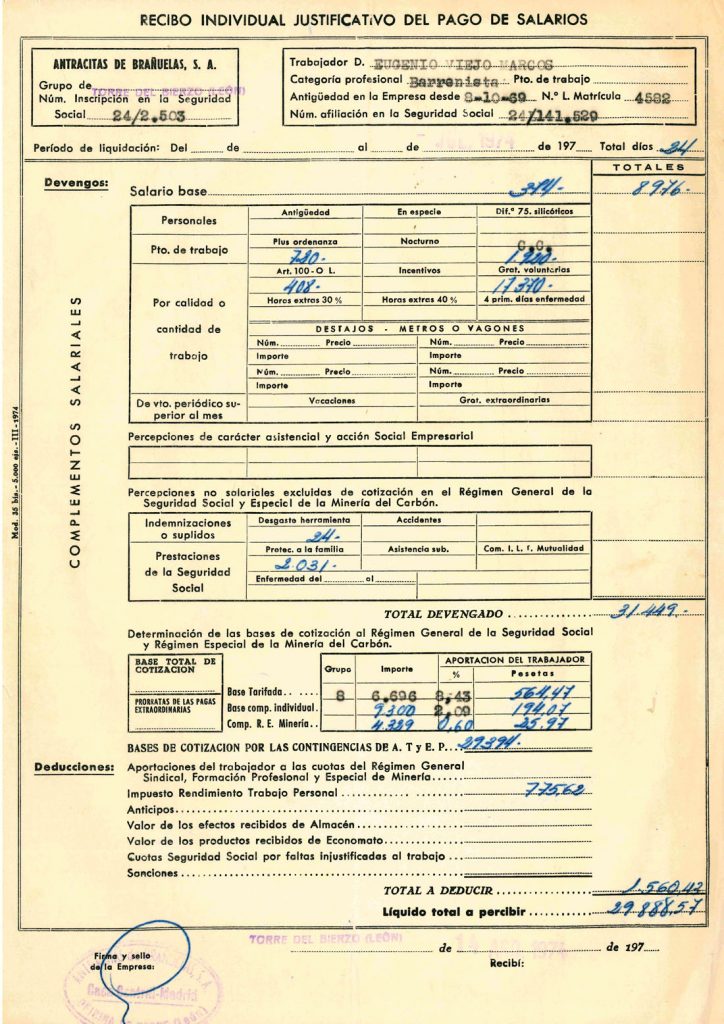 RECIBO INDIVIDUAL JUSTIFICATIVO DEL PAGO DE SALARIOS
ANTRACITAS DE BRAÑUELAS, S. A.
Grupo de TORRE DEL BIERZO (LEÓN)
Núm. Inscripción en la Seguridad
Social 24/2.503
Trabajador D. EUGENIO VIEJO MARCOS
Categoría profesional Barrenista Pto. de trabajo
Antigüedad en la Empresa desde 8-10-69 N.º L. Matrícula 4582
Núm. afiliación en la Seguridad Social 24/141.529
Período de liquidación: Del de al JUL. 1974 de 197 Total días 24
TOTALES
Devengos:
Salario base 374.- 8.976.-
COMPLEMENTOS SALARIALES
Personales
Antigüedad En especie Dif.ª 75. silicóticos
Pto. de trabajo
Plus ordenanza Nocturno C.C.
720.- 1.920.-
Por calidad o cantidad de trabajo
Art. 100-O L. Incentivos Grat. voluntarias
408.- 17.370.-
Horas extras 30 % Horas extras 40 % 4 prim. días enfermedad
DESTAJOS - METROS O VAGONES
Núm. Precio Núm. Precio
Importe Importe
Núm. Precio Núm. Precio
Importe Importe
De vto. periódico superior al mes
Vacaciones Grat. extraordinarias
Percepciones de carácter asistencial y acción Social Empresarial
Percepciones no salariales excluidas de cotización en el Régimen General de la
Seguridad Social y Especial de la Minería del Carbón.
Indemnizaciones o suplidos
Desgaste herramienta Accidentes
24.-
Prestaciones de la Seguridad Social
Protec. a la familia Asistencia sub. Com. I. L. T. Mutualidad
2.031.-
Enfermedad del al
TOTAL DEVENGADO 31.449.-
Determinación de las bases de cotización al Régimen General de la Seguridad Social
y Régimen Especial de la Minería del Carbón.
BASE TOTAL DE COTIZACION
PRORRATAS DE LAS PAGAS EXTRAORDINARIAS
Grupo Importe APORTACION DEL TRABAJADOR
% Pesetas
Base Tarifada 8 6.696 8,43 564,47
Base comp. individual 9.300 2,09 194,07
Comp. R. E. Minería 4.329 0,60 25,97
BASES DE COTIZACION POR LAS CONTINGENCIAS DE A. T y E. P. 29.394.-
Deducciones:
Aportaciones del trabajador a las cuotas del Régimen General
Sindical, Formación Profesional y Especial de Minería
Impuesto Rendimiento Trabajo Personal 775,62
Anticipos
Valor de los efectos recibidos de Almacén
Valor de los productos recibidos de Economato
Cuotas Seguridad Social por faltas injustificadas al trabajo
Sanciones
TOTAL A DEDUCIR 1.560,43
Líquido total a percibir 29.888,57
TORRE DEL BIERZO (LEÓN) de de 197
Firma y sello
de la Empresa:
Recibí:
Mod. 35 bis.- 5.000 eje.-III-1974